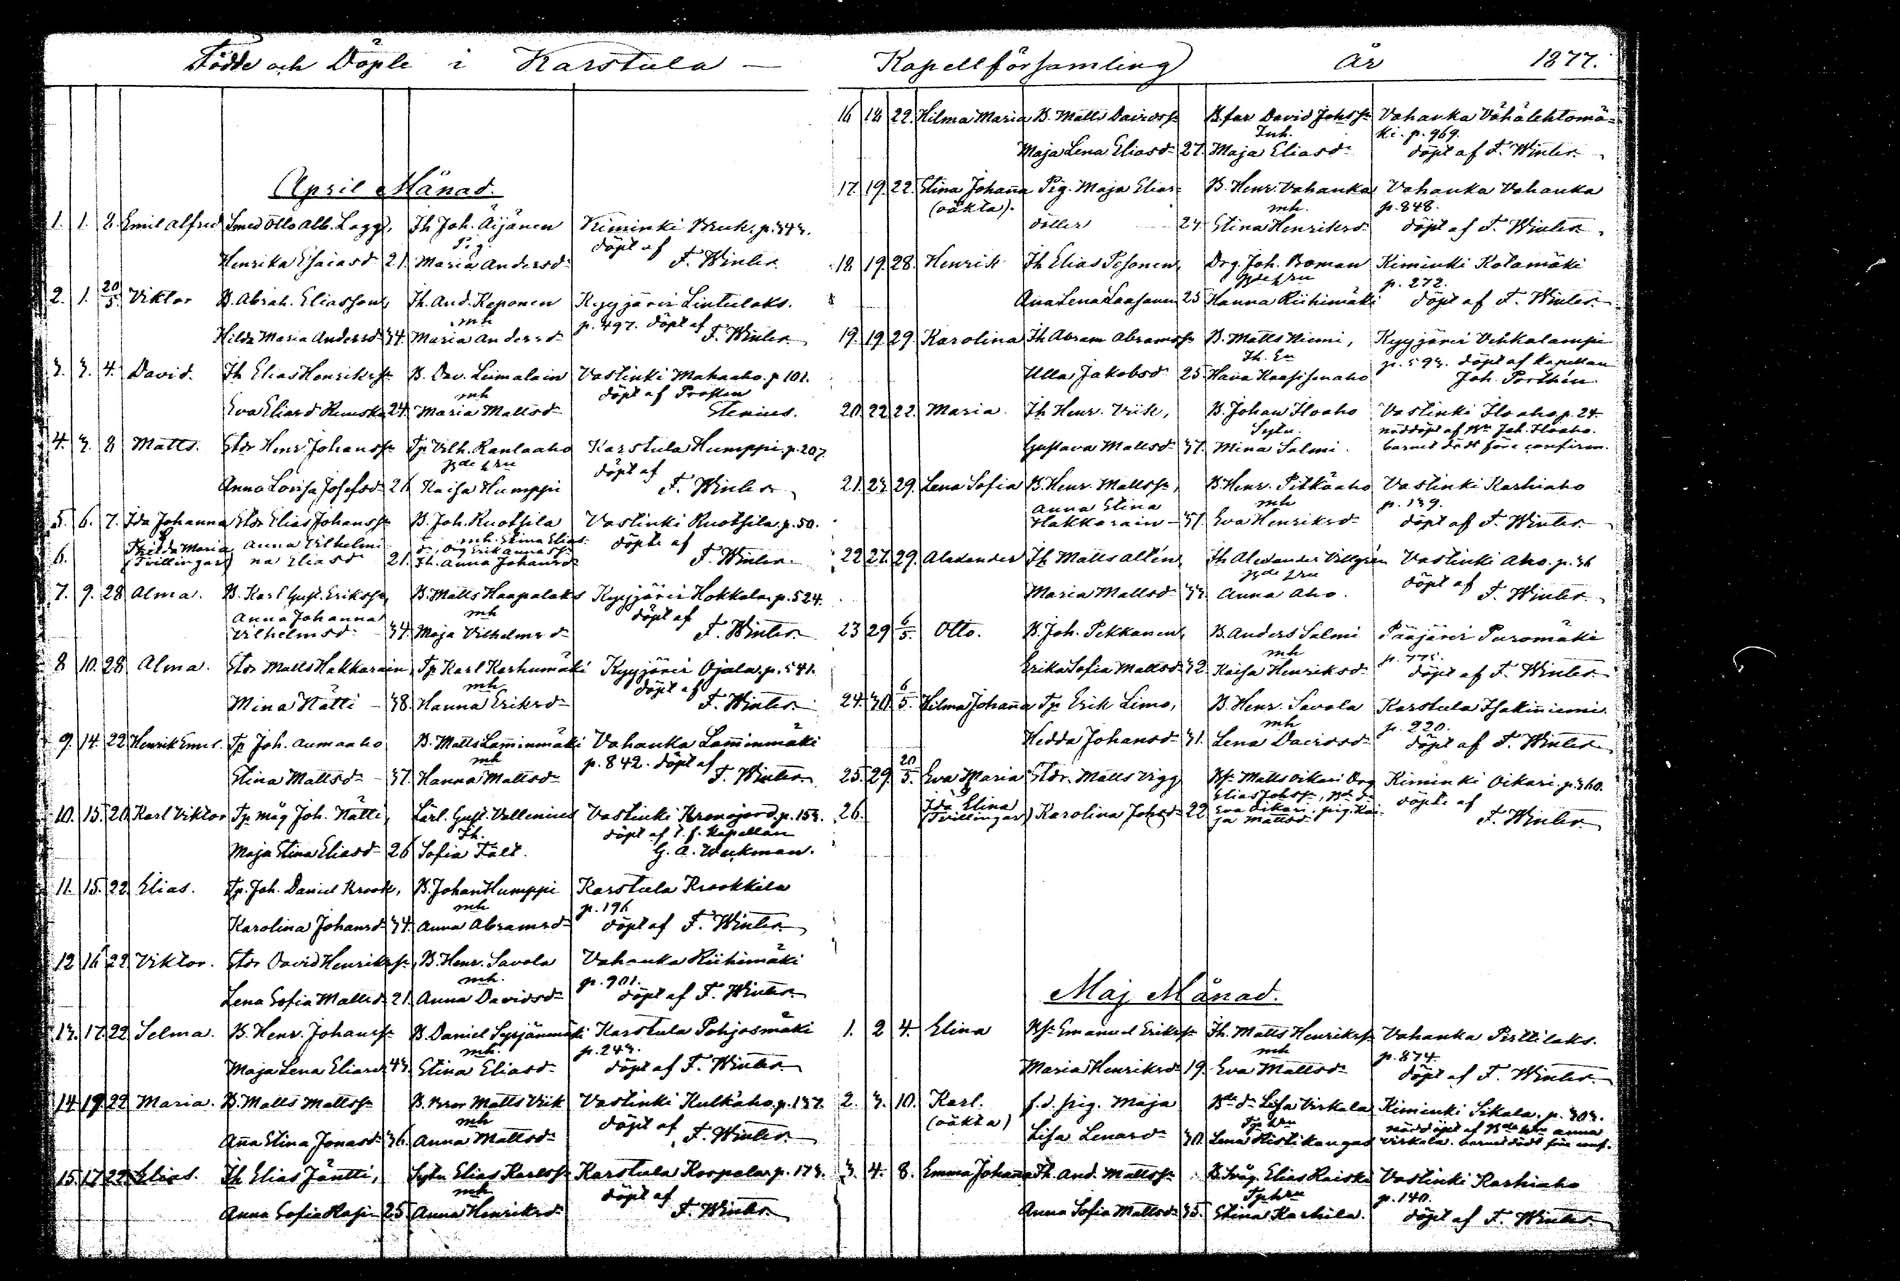 Födde och Döpte i Karstula — Kapellförsamling År 1877.
April Månad.
1. 1. 2. Emil Alfred Smed Otto Alb. Lagg, Ih Joh. Äijänen Kiminki Bruk. p.343.
Pig. döpt af
Henrika Esaiasd 21. Maria Andersd F. Winter
2. 1. 20/5. Viktor B. Abrah. Eliasson, Ih. And. Keponen Kyyjärvi Lintulaks.
mh p.497. döpt af
Hilda Maria Andersd 34. Maria Andersd F. Winter
3. 3. 4. David. Ih Elias Henriksss B. Dav. Leimalain Vastinki Mahaaho. p 101.
mh döpt af Prosten
Eva Eliasd 24. Maria Mattsd Stenius.
4. 3. 8 Matts. Stdr Henr Johanss Tp Vilh. Rantaaho Karstula Humppi p.207
döpt af
Anna Lovisa Josefsd 21 Kaisa Humppi F. Winter
5. 6. 7. Ida Johanna Stdr Elias Johanss B. Joh. Ruotsila Vastinki Ruotsila p.50.
& Anna Vilhelmi mh Stina Elias döpte af
6. Maria na Eliasd 21. Ih. Anna Johansd F. Winter
(Tvillingar)
7. 9. 28 Alma. B. Karl Gust. Eriksss, B. Matts Haapalaks Kyyjärvi Hokkala p.524.
Anna Johanna mh döpt af
Vilhelmsd 34. Maja Vilhelmsd F. Winter
8 10. 28 Alma. Stdr Matts Hakkarain, Tp Karl Karhumäki Kyyjärvi Ojala p.541.
mh döpt af
Mina Nätti 38. Hanna Eriksd F. Winter
9. 14. 22 Henrik Emil. Tp Joh. Aumaaho B. Matts Lamminmäki Vahanka Lamminmäki
mh p.842. döpt af
Stina Mattsd 37. Hanna Mattsd F. Winter
10. 15. 20 Karl Viktor Tp. måg Joh. Nätti, Lärl. Gust. Vallenius Vastinki Kronojord p.153.
Ih. döpt af t. f. Kapellan
Maja Stina Eliasd 26 Sofia Fält. G. A. Weckman.
11. 15. 22. Elias. Tp. Joh. Daniel Krook, B. Johan Humppi Karstula Krookkila
mh p.196
Karolina Johansd 34. Anna Abramsd döpt af F. Winter
12 16 22 Viktor. Stdr David Henriksss, B. Henr. Savola Vahanka Riihimäki
mh. p.901.
Lena Sofia Mattsd 21 Anna Davidsd döpt af F. Winter
13. 17. 22 Selma. B. Henr. Johansss B. Daniel Syrjänmäki Karstula Pohjosmäki
mh. p.243.
Maja Lena Eliasd 43. Stina Eliasd döpt af F. Winter
14. 19. 22 Maria. B. Matts Mattsss B. Bror Matts Vrik Vastinki Kulkaho. p.137.
mh döpt af
Anna Stina Jonasd 36. Anna Mattsd F. Winter
15. 17 22 Elias. Ih Elias Jäntti, Sytn Elias Karlsss Karstula Koopala p.173.
mh döpt af
Anna Sofia 25. Anna Henriksd F. Winter
16 18 22. Hilma Maria B. Matts Davidss B.far David Johss Vahanka Vähälehtomä=
Inh. ki. p.969.
Maja Lena Eliasd 27. Maja Eliasd döpt af F. Winter
17. 19. 22. Stina Johanna Pig. Maja Elias= B. Henr. Vahanka Vahanka Vahanka
(oäkta). mh. p.848.
dotter 24 Stina Henriksd döpt af F. Winter
18 19. 28. Henrik Ih Elias Pesonen, Drg. Joh. Boman Kiminki Kotamäki
p. 272.
Anna Lena Laasanen 25 Hanna Riihimäki döpt af F. Winter
19. 19. 29. Karolina Ih Abram Abramss B. Matts Niemi, Kyyjärvi Verkalampi
Ih. En p.593. döpt af Kapellan
Ulla Jakobsd 25 Hava Kaasisenaho Joh. Porthén.
20. 22 22. Maria. Ih Henr. Vrik, B. Johan Iloaho Vastinki Iloaho p.24.
Sytn. nöddöpt af Bn Joh. Iloaho.
Gustava Mattsd 37. Mina Salmi. barnet dödt före confirm.
21. 23. 29. Lena Sofia B. Henr. Mattsss, B. Henr. Pitkäaho Vastinki Karhiaho
Anna Stina mh p.139.
Hakkarain 37. Eva Henriksd döpt af F. Winter
22 27. 29. Alexander Ih Matts Altén, Ih Alexander Villgren Vastinki Aho. p.36
döpt af
Maria Mattsd 33. Anna Aho. F. Winter
23 29 6/5 Otto. B. Joh. Pekkanen, B. Anders Salmi Pääjärvi Puromäki
mh p.775.
Erika Sofia Mattsd 32. Kaisa Henriksd döpt af F. Winter
24. 30. 6/5. Hilma Johanna Tp Erik Limo, B. Henr. Savola Karstula Isakinniemi.
mh p.220.
Hedda Johansd 31. Lena Davidsd döpt af F. Winter
25. 29. 20/5. Eva Maria Stdr. Matts Vigg Bs Matts Oikari Drg Kiminki Oikari. p.360.
& Elias Johss, döpte af
26. Ida Stina Karolina Johsd 22 Eva Oikari, pig. Kai F. Winter
(Tvillingar) ja Mattsd
Maj Månad.
1. 2 4. Stina Bs Emanuel Eriksss Ih. Matts Henriksss Vahanka Perttilaks.
mh p.874
Maria Henriksd 19. Eva Mattsd döpt af F. Winter
2. 3. 10. Karl. f.d. pig. Maja Lisa Virkala Kiminki Sikala. p. 303.
(oäkta) nöddöpt af Anna
Lisa Lenard 30. Lena Ristikangas Virkala. barnet dödt före conf.
3. 4. 8. Emma Johanna Ih. And. Mattsss B. Svåg. Elias Raiski Vastinki Karhiaho
p.140.
Anna Sofia Mattsd 35. Stina Karhila. döpt af F. Winter